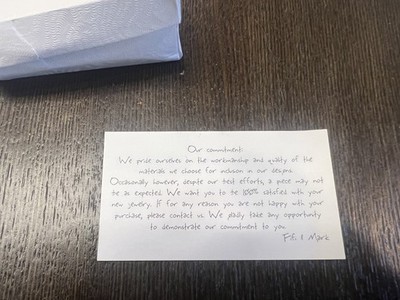 Our commitment:
We pride ourselves on the workmanship and quality of the
materials we choose for inclusion in our designs.
Occasionally however, despite our best efforts, a piece may not
be as expected. We want you to be 100% satisfied with your
new jewelry. If for any reason you are not happy with your
purchase, please contact us. We gladly take any opportunity
to demonstrate our commitment to you.
& Mark